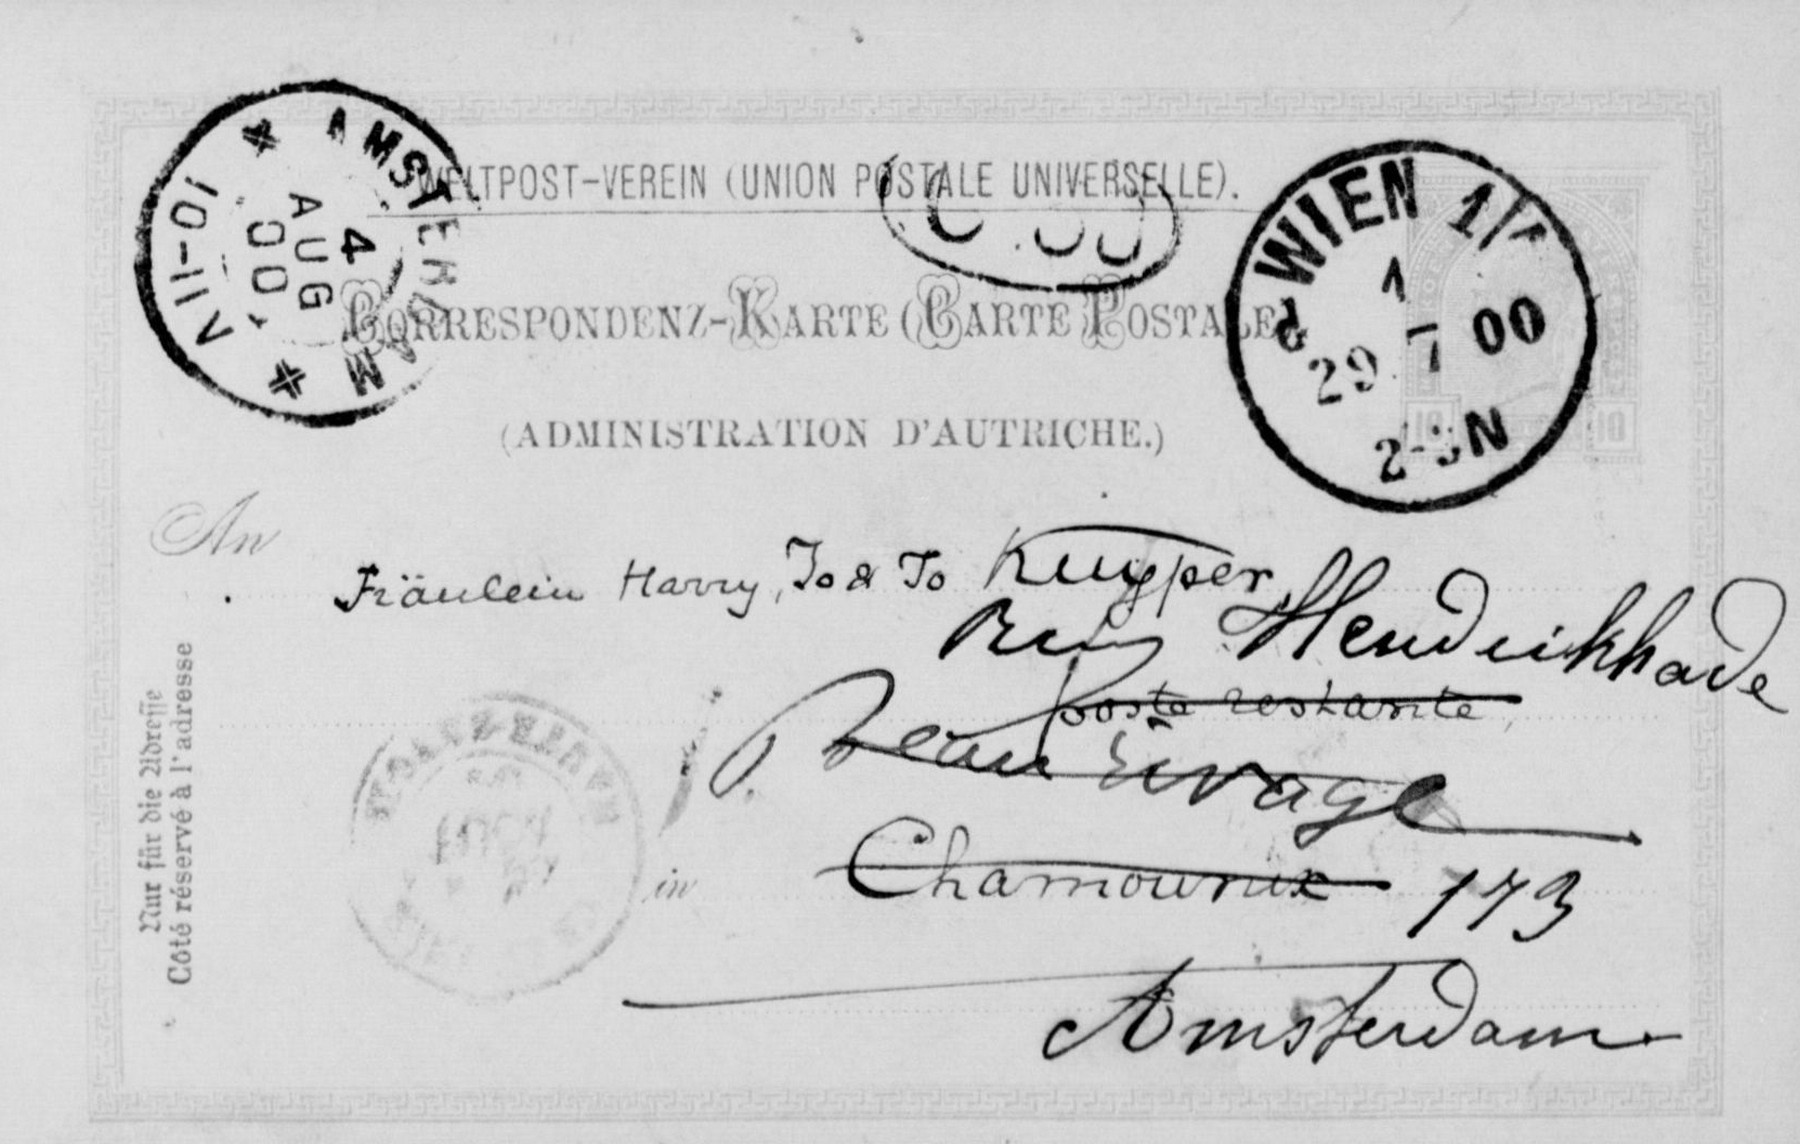 WELTPOST-VEREIN (UNION POSTALE UNIVERSELLE).
CORRESPONDENZ-KARTE (CARTE POSTALE)
(ADMINISTRATION D'AUTRICHE.)
AMSTERDAM
4
AUG
00
VII-01
WIEN 1/1
1
29 7 00
2-3N
10 10
An
Fräulein Harry, Jo & To Kuyper
Hendrikkade
poste restante
Beau Rivage
in Chamounix 173
Amsterdam
Nur für die Adresse
Côté réservé à l'adresse